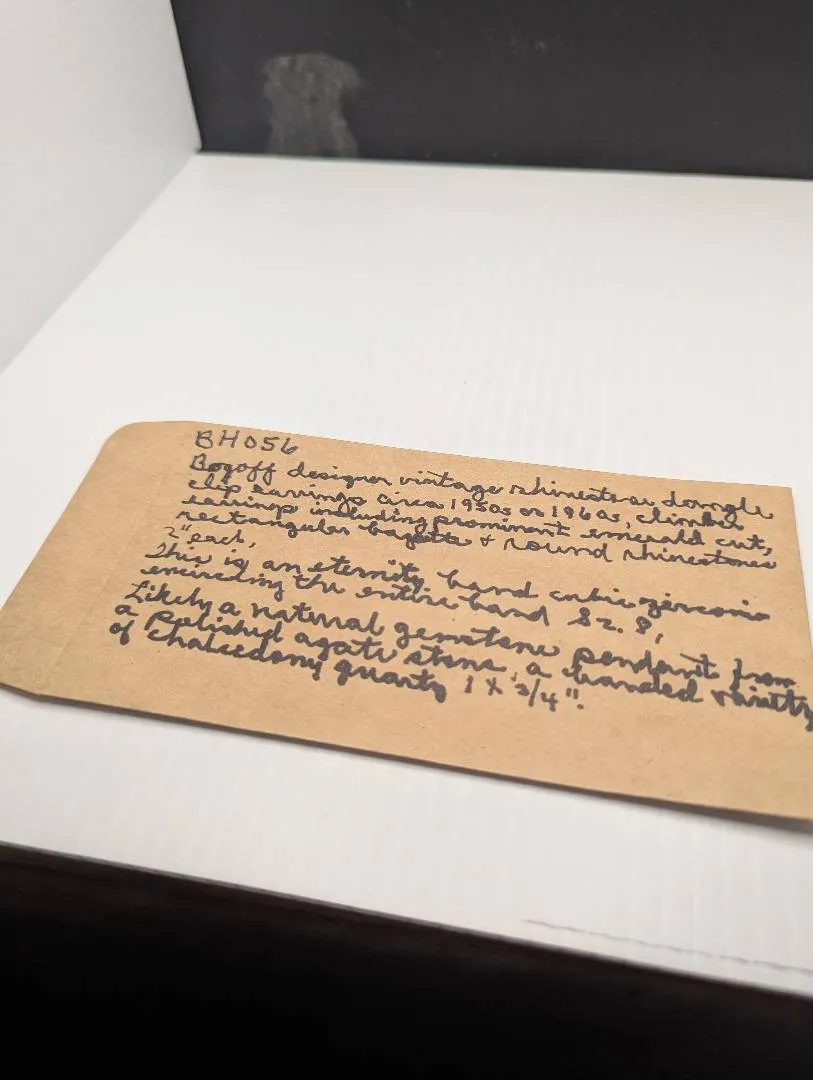 BH056
Bogoff designer vintage rhinestone dangle
clip earrings circa 1950s or 1960s, climber
earrings including prominent emerald cut,
rectangular bagette & round rhinestones
2" each,
This is an eternity band cubic zirconia
encircling the entire band Sz. 8,
Likely a natural gemstone pendant from
a polished agate stone, a banded variety
of chalcedony quartz 1 x 3/4".